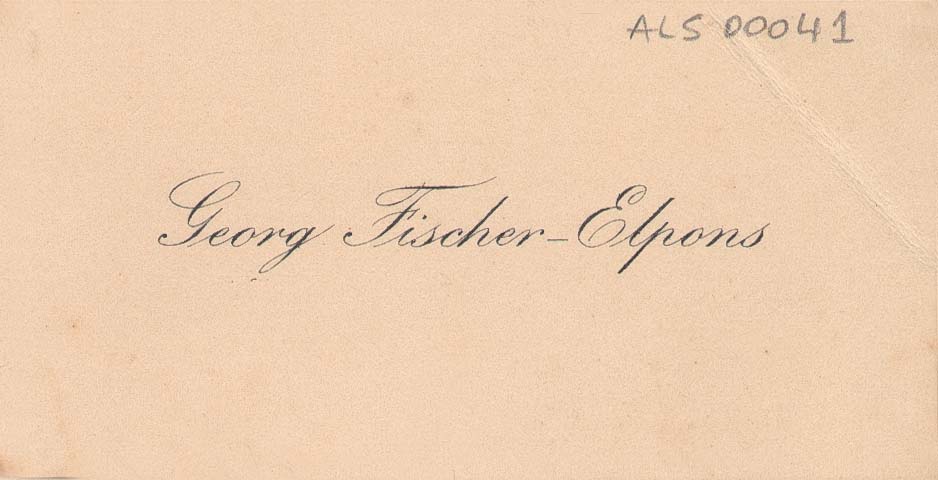 ALS 00041
Georg Fischer-Elpons